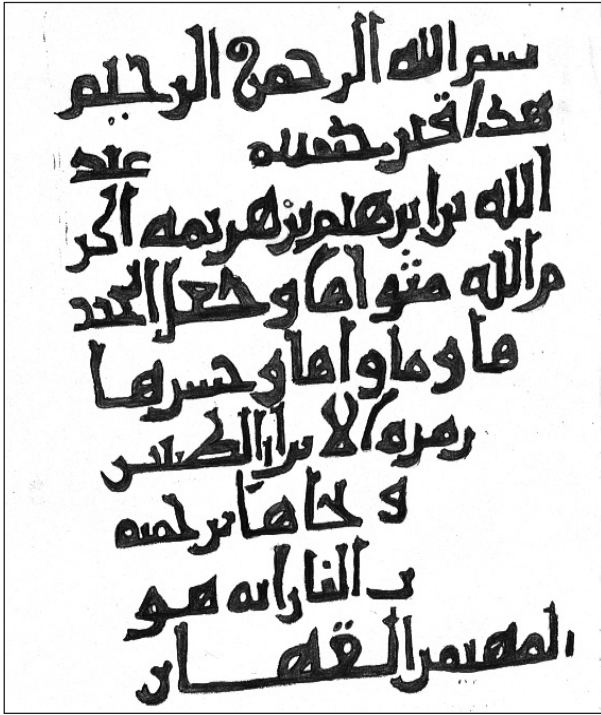 بسم الله الرحمن الرحيم
هذا قبر عبد
الله بن ابرهيم بن اكر
م الله مثواها وجعل
وماواها وحشرها
زمره الابرار الطيبين
و نجاها برحمته
النار انه هو
المهيمن القهار